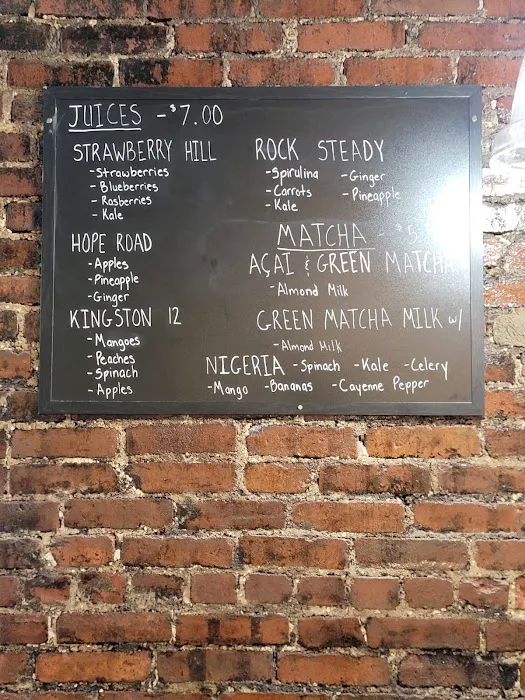 JUICES - $7.00
STRAWBERRY HILL
- Strawberries
- Blueberries
- Rasberries
- Kale
HOPE ROAD
- Apples
- Pineapple
- Ginger
KINGSTON 12
- Mangoes
- Peaches
- Spinach
- Apples
ROCK STEADY
- Spirulina - Ginger
- Carrots - Pineapple
- Kale
MATCHA - $5.
AÇAI & GREEN MATCHA
- Almond Milk
GREEN MATCHA MILK w/
- Almond Milk
NIGERIA - Spinach - Kale - Celery
- Mango - Bananas - Cayenne Pepper